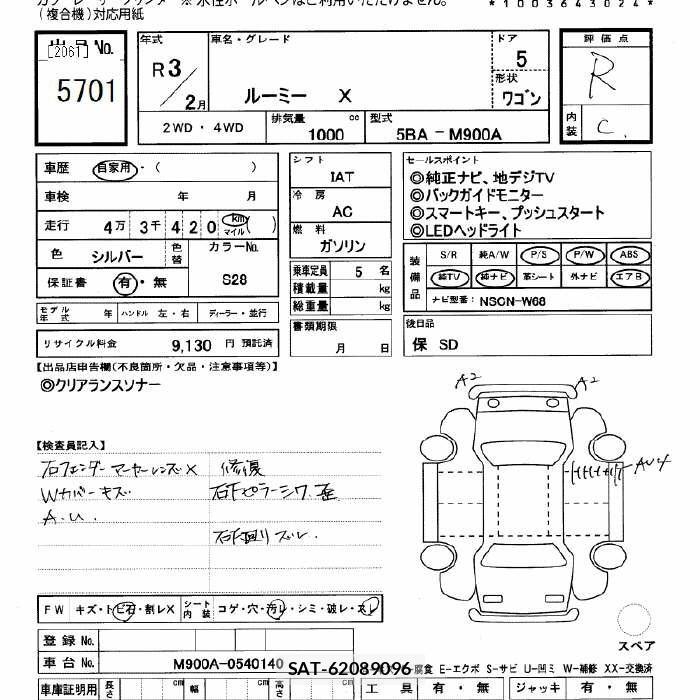 (複合機)対応用紙
*1003643024*
出品No.
[2061]
5701
年式 車名・グレード ドア 評価点
R3/2月 ルーミー X 5 R
形状 ワゴン
2WD・4WD 排気量 1000 cc 型式 5BA-M900A 内装 C.
車歴 自家用・( )
車検 年 月
走行 4万 3千 4 2 0 km マイル ( )
色 シルバー 色替 カラーNo. S28
保証書 有・無
モデル年式 年 ハンドル 左・右 ディーラー・並行
リサイクル料金 9,130 円 預託済
シフト
IAT
冷房
AC
燃料
ガソリン
乗車定員 5 名
積載量 kg
総重量 kg
書類期限
月 日
セールスポイント
◎純正ナビ、地デジTV
◎バックガイドモニター
◎スマートキー、プッシュスタート
◎LEDヘッドライト
装備品 S/R 純A/W P/S P/W ABS
純TV 純ナビ 革シート 外ナビ エアB
ナビ型番: NSCN-W68
後日品
保 SD
【出品店申告欄(不良箇所・欠品・注意事項等)】
◎クリアランスソナー
【検査員記入】
右フェンダーマーカーレンズX 修復
Wカバーキズ 右Fピラーシワ.歪
A.U. 右F廻りズレ.
A2 A2
AU4
スペア
FW キズ・トビ石・割レX シート内装 コゲ・穴・汚レ・シミ・破レ・スレ
登録No.
車台No. M900A-0540140
SAT-62089096
腐食 E-エクボ S-サビ U-凹ミ W-補修 XX-交換済
車庫証明用 長さ cm 幅 cm 高さ cm 工具 有・無 ジャッキ 有・無